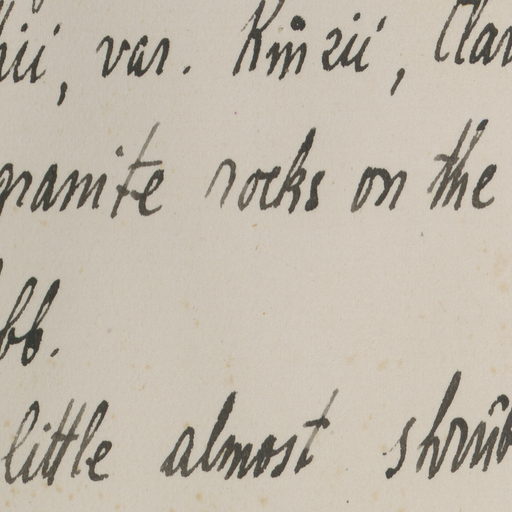 hii, var. Kinzii, Clar
granite rocks on the
bb.
little almost shrub